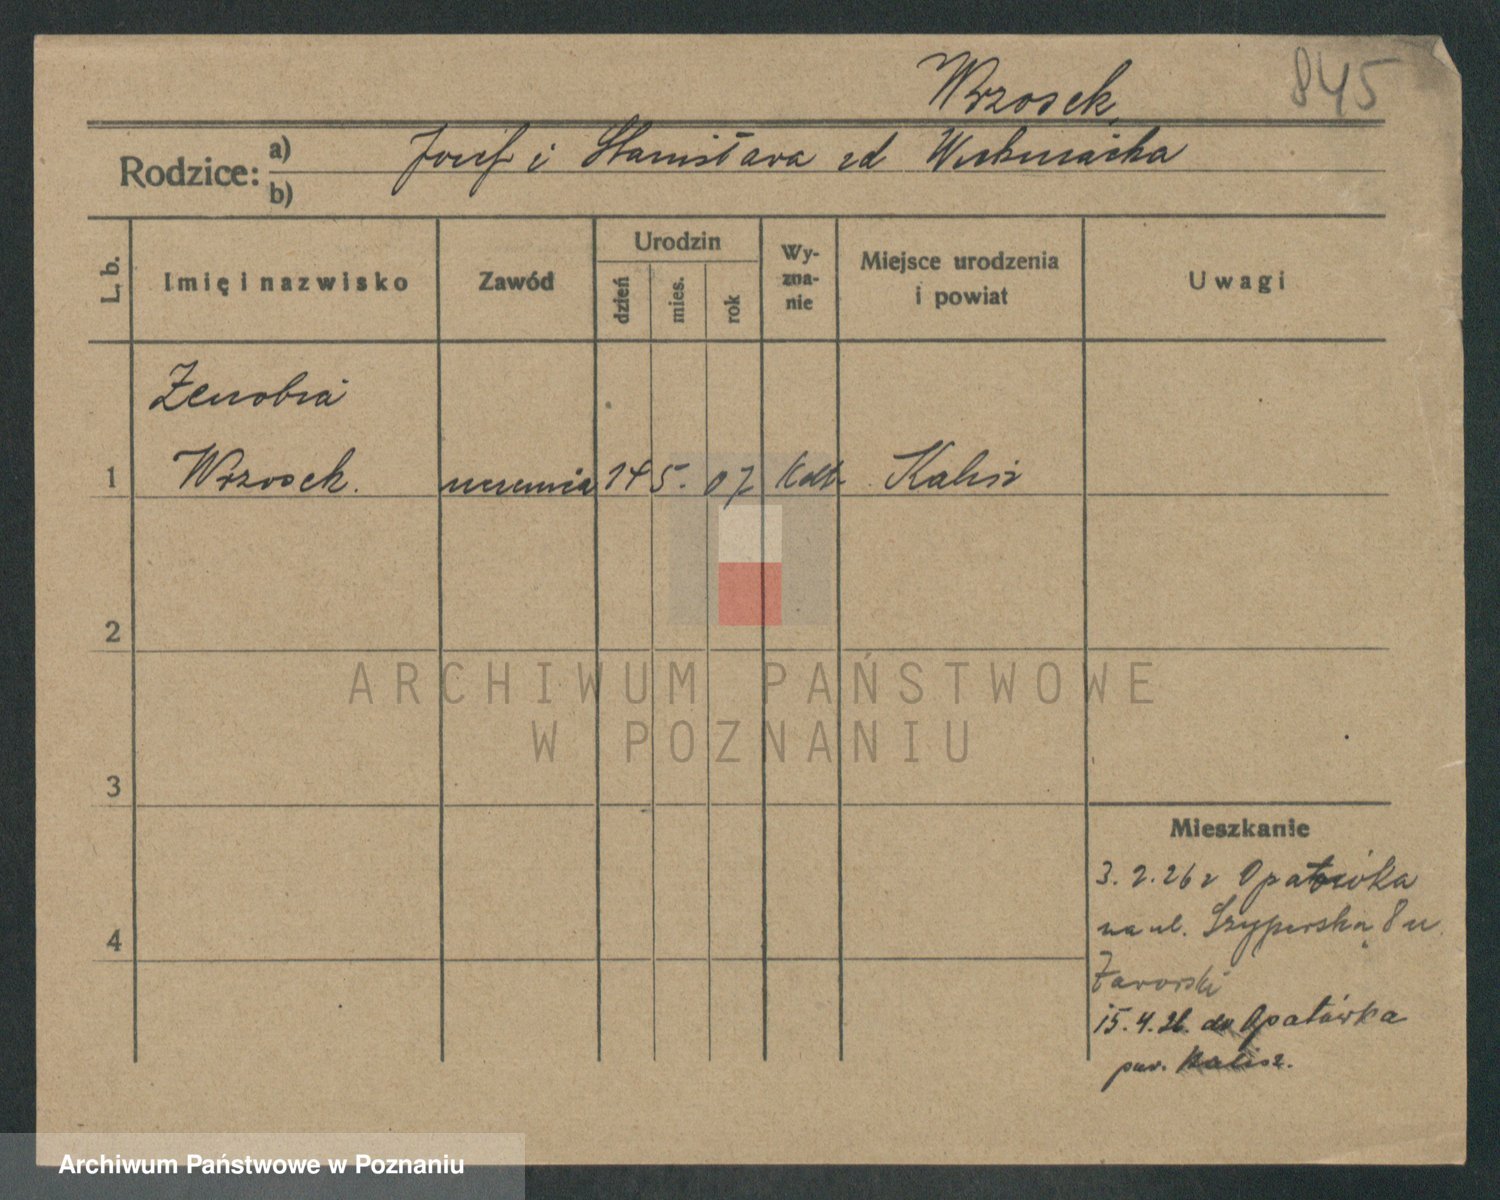 Wrzosek
845
Rodzice: a) Józef i Stanisława zd
b)
L. b.
Imię i nazwisko
Zawód
Urodzin
dzień
mies.
rok
Wy-
zna-
nie
Miejsce urodzenia
i powiat
Uwagi
Zenobia
1 Wrzosek. uczennia 14 5. 07 Kat. Kalisz
2
ARCHIWUM PAŃSTWOWE
W POZNANIU
3
Mieszkanie
3. 2. 26 z Opatówka
na ul. Szyperska 8 u
4
Zaworski
15. 4. 26. do Opatówka
pow. Kalisz.
Archiwum Państwowe w Poznaniu